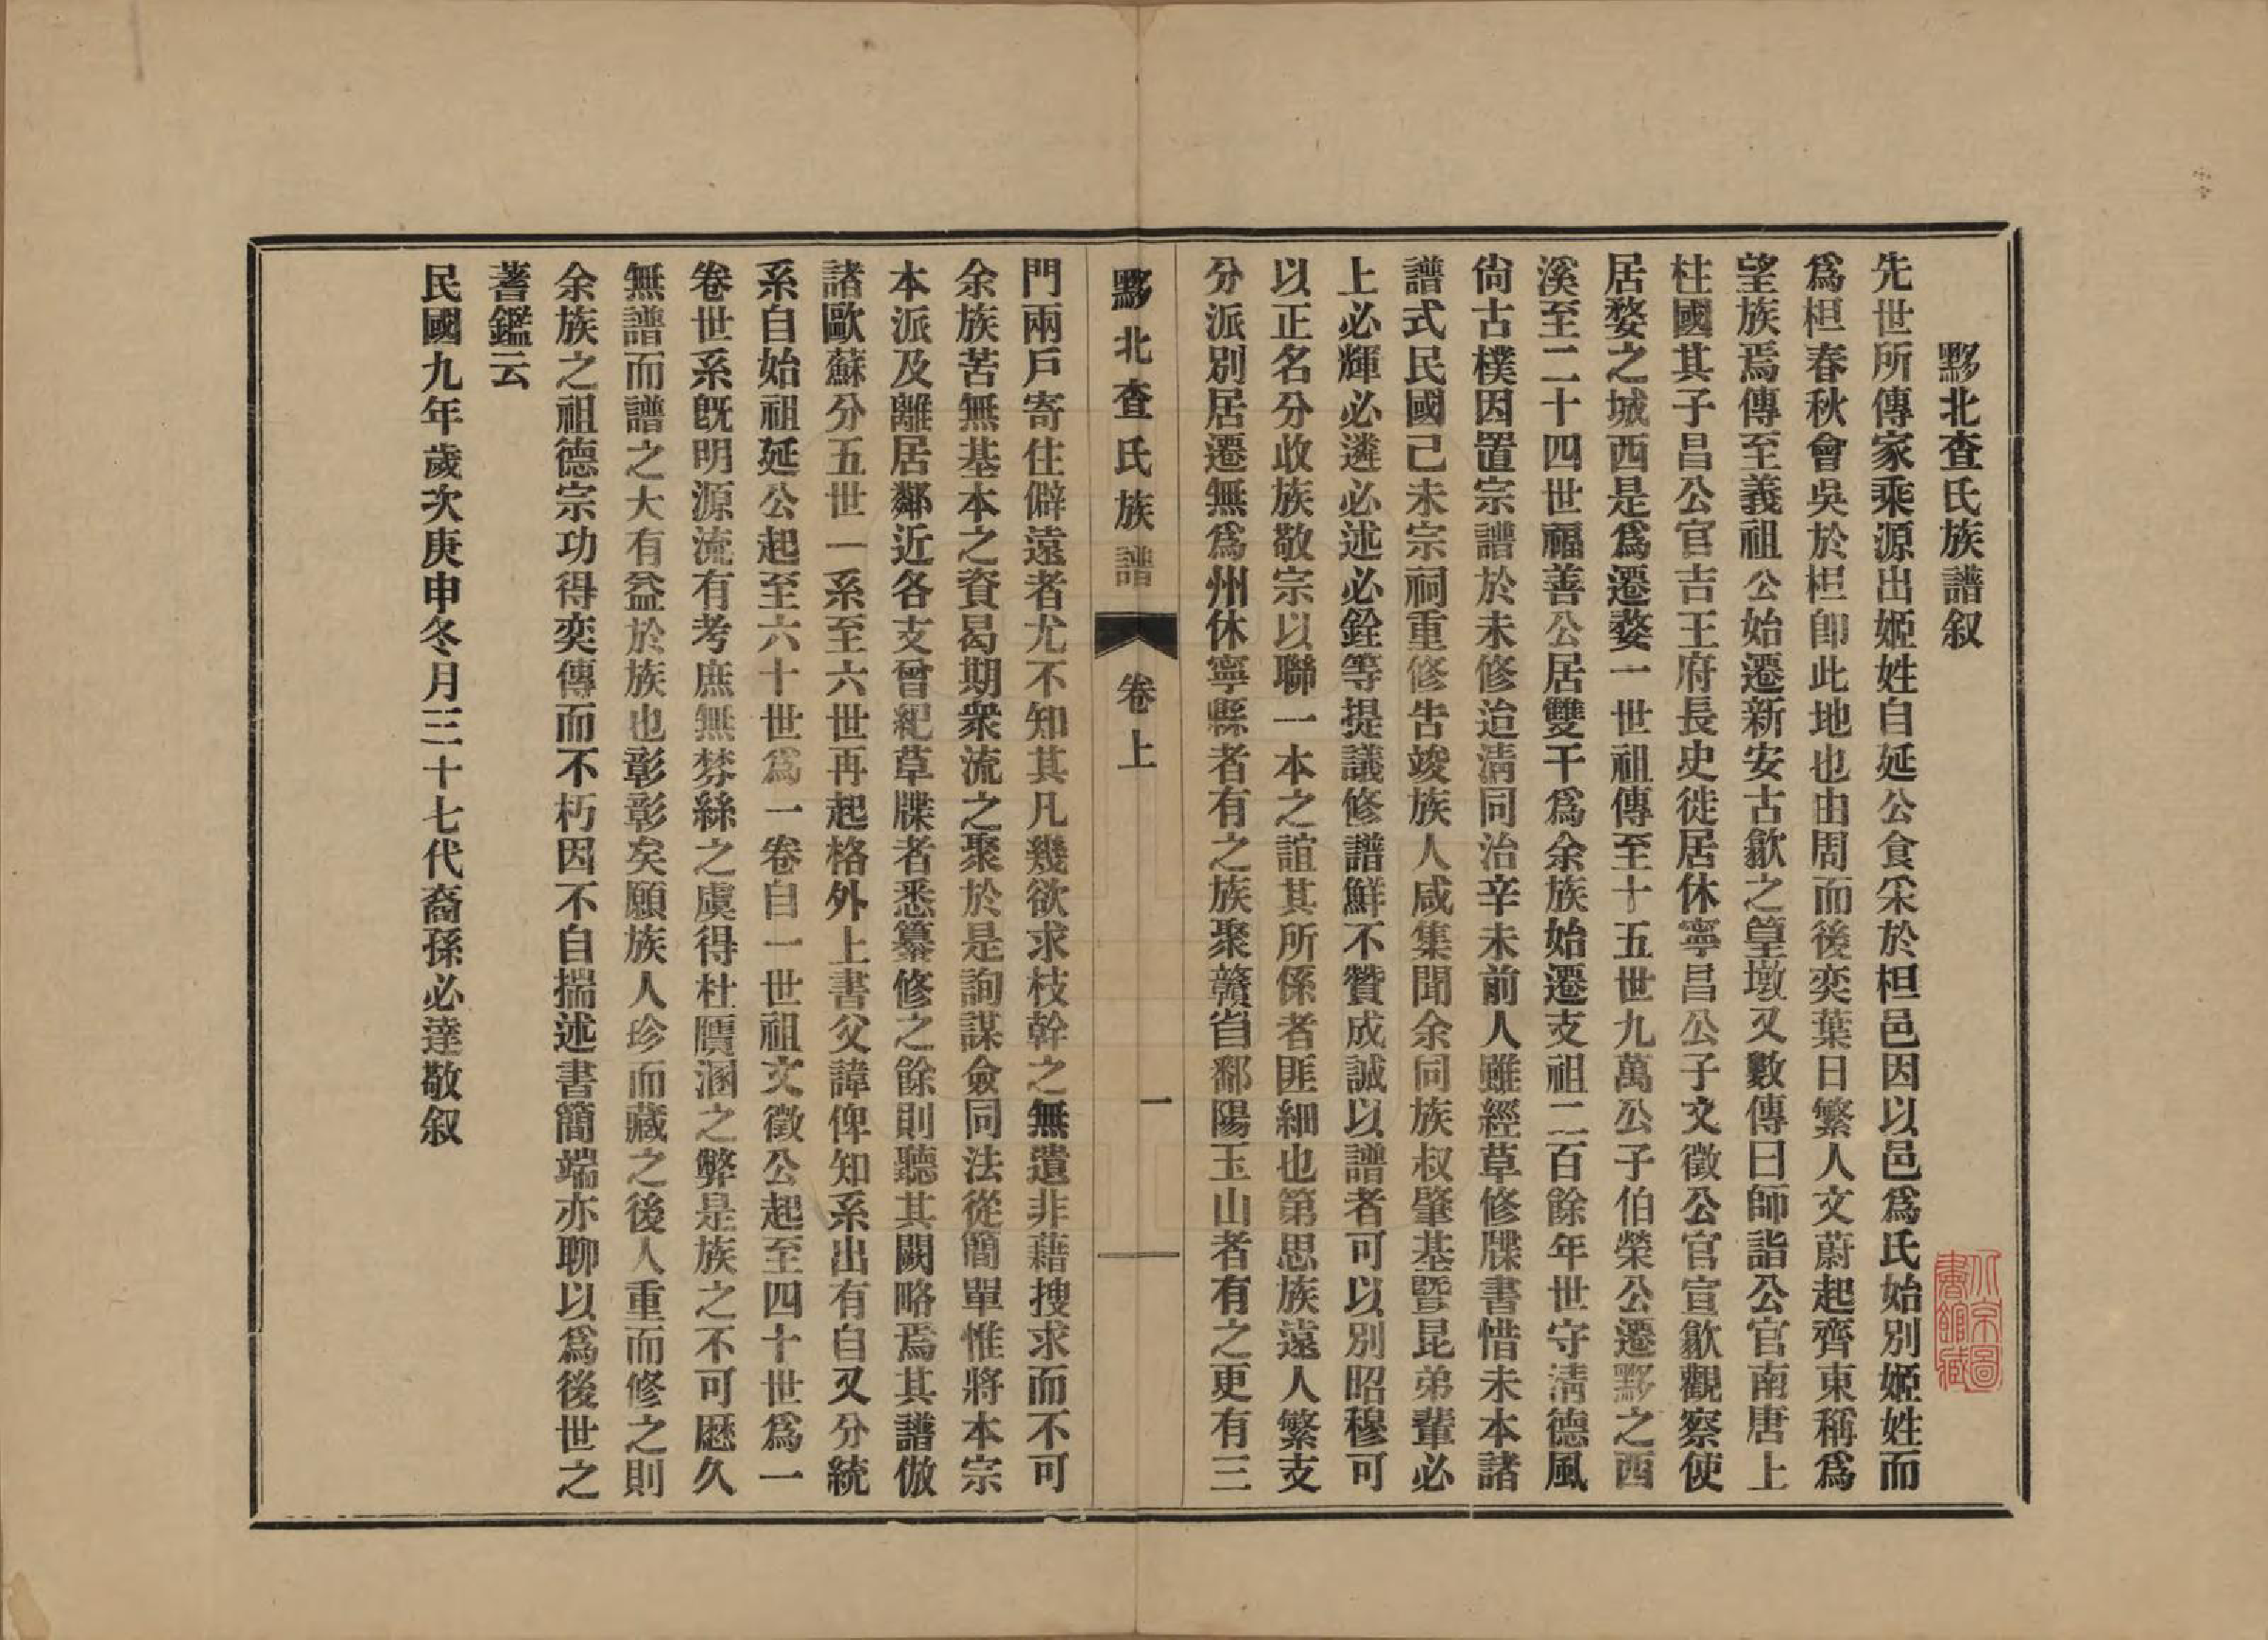 黟北查氏族譜叙
先世所傳家乘源出姬姓自延公食采於柤邑因以邑爲氏始別姬姓而
爲柤春秋會吳於柤卽此地也由周而後奕葉日繁人文蔚起齊東稱爲
望族焉傳至義祖公始遷新安古歙之篁墩又數傳曰師詣公官南唐上
柱國其子昌公官吉王府長史徙居休寧昌公子文徵公官宣歙觀察使
居婺之城西是爲遷婺一世祖傳至十五世九萬公子伯榮公遷黟之西
溪至二十四世福善公居雙干爲余族始遷支祖二百餘年世守淸德風
尙古樸因置宗譜於未修迨淸同治辛未前人雖經草修牒書惜未本諸
譜式民國己未宗祠重修告竣族人咸集聞余同族叔肇基曁昆弟輩必
上必輝必遴必述必銓等提議修譜鮮不贊成誠以譜者可以別昭穆可
以正名分收族敬宗以聯一本之誼其所係者匪細也第思族遠人繁支
分派別居遷無爲州休寧縣者有之族聚贛省鄱陽玉山者有之更有三
黟北查氏族譜 卷上 一
門兩戶寄住僻遠者尤不知其凡幾欲求枝幹之無遺非藉搜求而不可
余族苦無基本之資曷期衆流之聚於是詢謀僉同法從簡單惟將本宗
本派及離居鄰近各支曾紀草牒者悉纂修之餘則聽其闕略焉其譜倣
諸歐蘇分五世一系至六世再起格外上書父諱俾知系出有自又分統
系自始祖延公起至六十世爲一卷自一世祖文徵公起至四十世爲一
卷世系旣明源流有考庶無棼絲之虞得杜贋溷之弊是族之不可歷久
無譜而譜之大有益於族也彰彰矣願族人珍而藏之後人重而修之則
余族之祖德宗功得奕傳而不朽因不自揣述書簡端亦聊以爲後世之
蓍鑑云
民國九年歲次庚申冬月三十七代裔孫必達敬叙